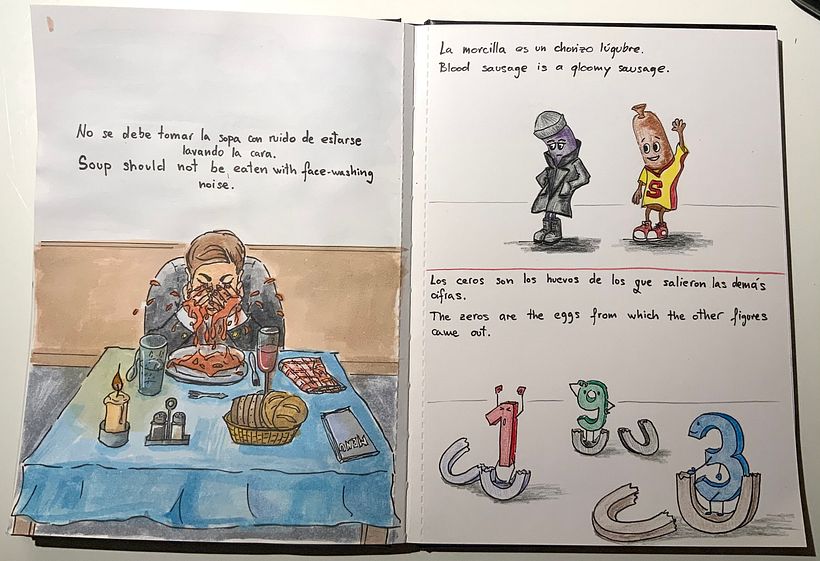 No se debe tomar la sopa con ruido de estarse
lavando la cara.
Soup should not be eaten with face-washing
noise.
MENÚ
La morcilla es un chorizo lúgubre.
Blood sausage is a gloomy sausage.
S
Los ceros son los huevos de los que salieron las demás
cifras.
The zeros are the eggs from which the other figures
came out.
1
9
3